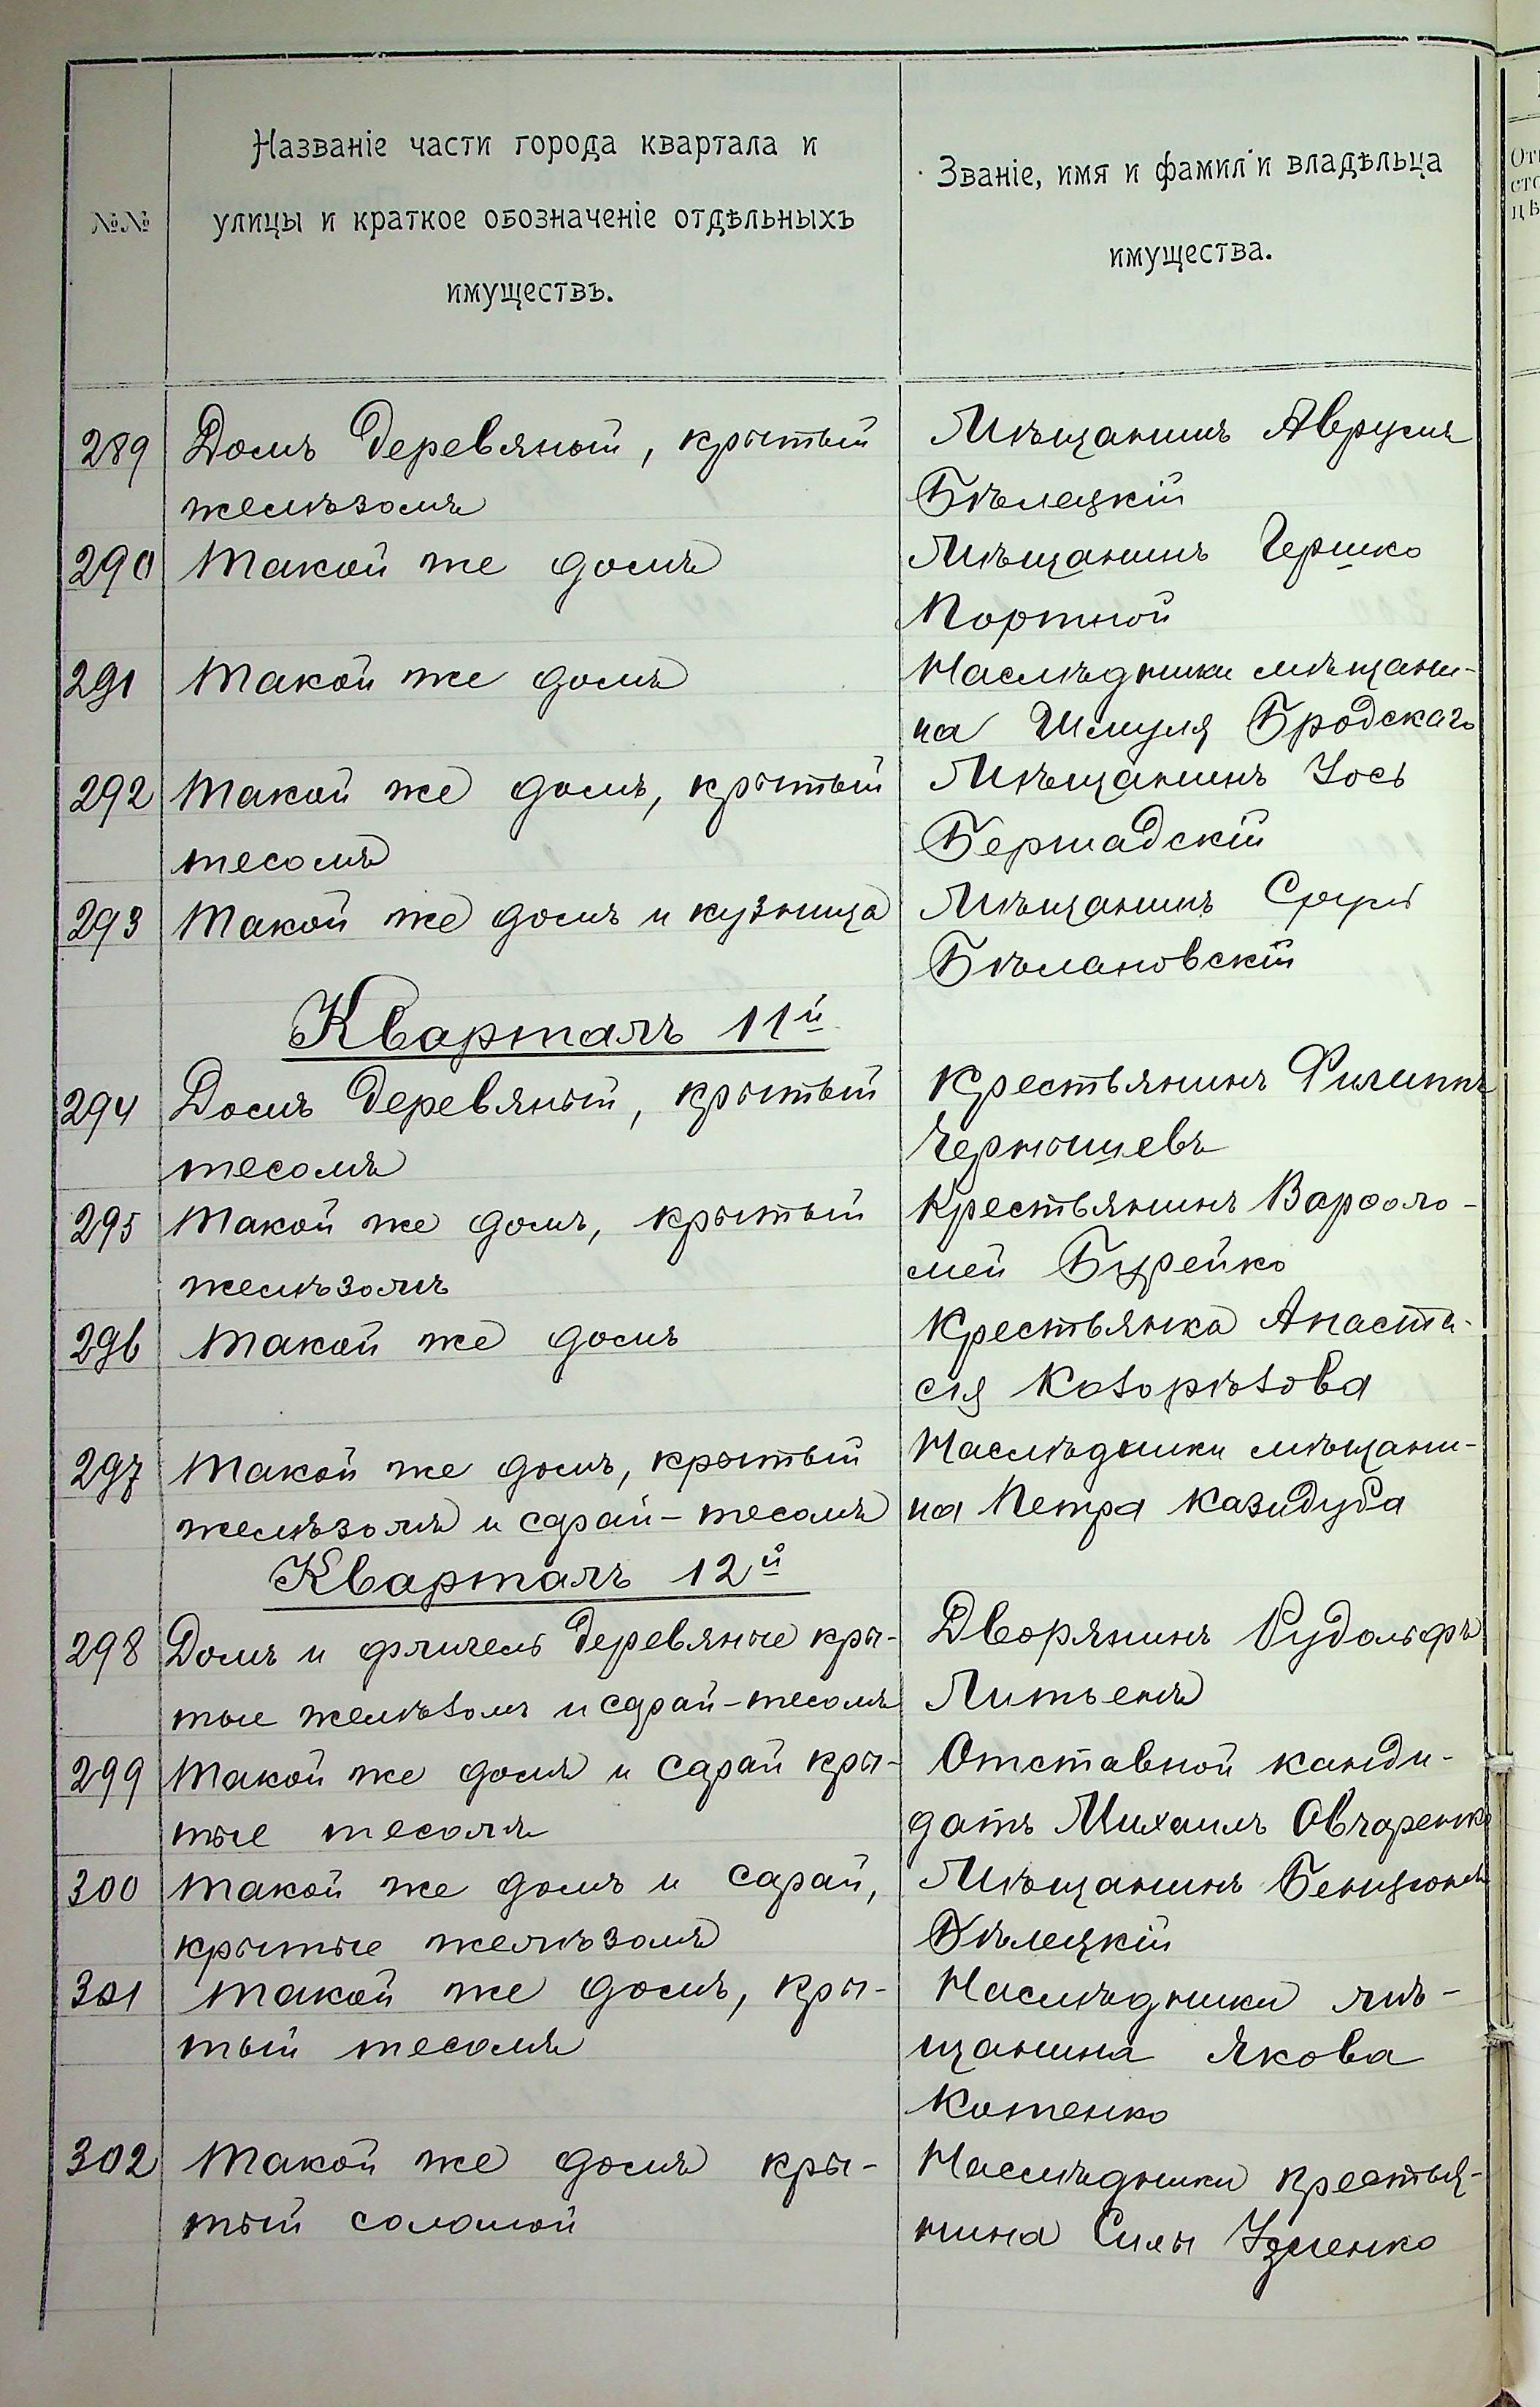 №№
Названіе части города квартала и
улицы и краткое обозначеніе отдѣльныхъ
имуществъ.
Званіе, имя и фамил и владѣльца
имущества.
289 Домъ деревяный, крытый Мѣщанинъ Аврумъ
желѣзомъ Бѣлецкій
290 Такой же домъ Мѣщанинъ Гершко
Портной
291 Такой же домъ Наслѣдники мѣщани-
на Шмуля Бродскаго
292 Такой же домъ, крытый Мѣщанинъ Іось
тесомъ Бершадскій
293 Такой же домъ и кузница Мѣщанинъ Сруль
Бѣлановскій
Кварталъ 11й
294 Домъ деревяный, крытый Крестьянинъ Филиппъ
тесомъ Чернышевъ
295 Такой же домъ, крытый Крестьянинъ Варѳоло-
желѣзомъ мей Бурейко
296 Такой же домъ Крестьянка Анаста-
сія Козорѣзова
297 Такой же домъ, крытый Наслѣдники мѣщани-
желѣзомъ и сарай - тесомъ на Петра Казидуба
Кварталъ 12й
298 Домъ и флигель деревяные кры- Дворянинъ Рудольфъ
тые желѣзомъ и сарай - тесомъ Литьенъ
299 Такой же домъ и сарай кры- Отставной канди-
тые тесомъ датъ Михаилъ Овчаренко
300 Такой же домъ и сарай, Мѣщанинъ Бенціонъ
крытые желѣзомъ Бѣлецкій
301 Такой же домъ, кры- Наслѣдники мѣ-
тый тесомъ щанина Якова
Котенко
302 Такой же домъ кры- Наслѣдники крестья-
тый соломой нина Силы